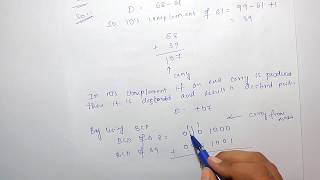 D = 68 - 61
In 10's complement of 61 = 99 - 61 + 1
= 39
68
+ 39
107
carry
In 10's complement if an end carry is produced
then it is discarded and result is
D = +07
By using BCD
BCD of 68 = 1000
BCD of 39 = 1001
+
carry from